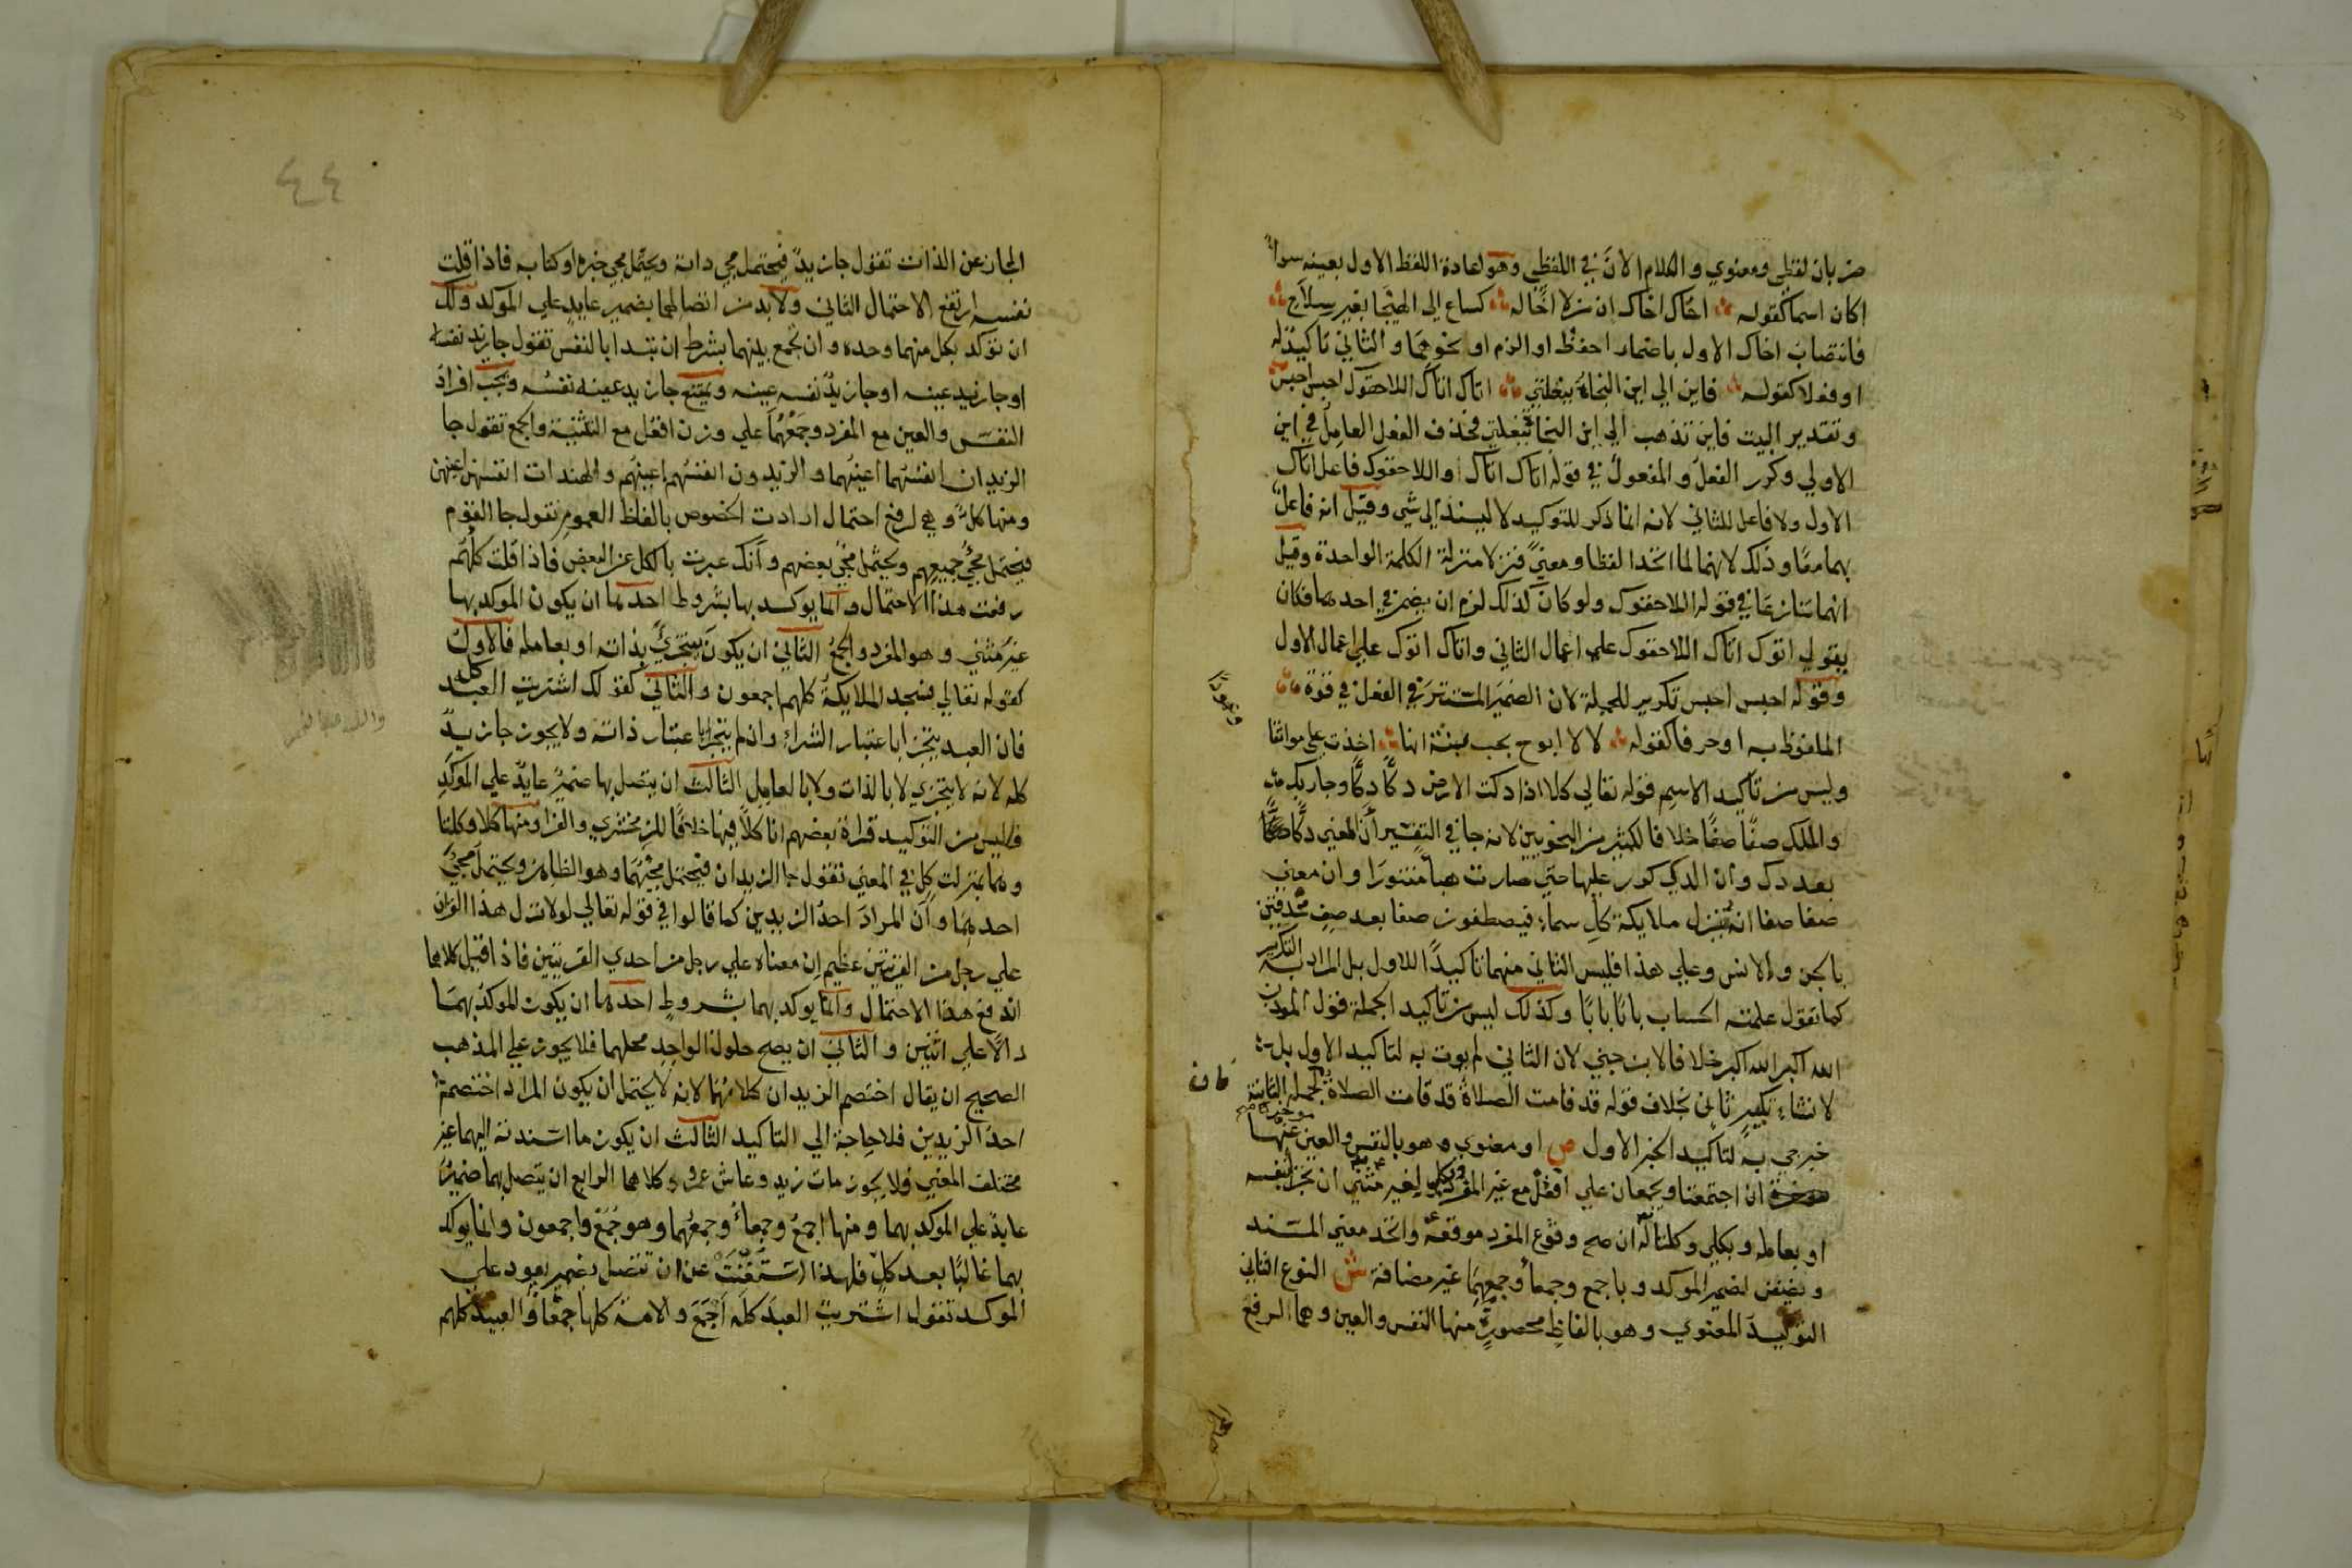 ضربان لفظي ومعنوي والكلام الان في اللفظي وهو اعادة اللفظ الاول بعينه سوا
اكان اسما كقوله اخاك اخاك ان من لا اخا له كساع الي الهيجا بغير سلاح
فانتصاب اخاك الاول باضمار احفظ او الزم او نحوهما والثاني تاكيد له
او فعلا كقوله فاين الي اين النجاة ببغلتي اتاك اتاك اللاحقوك احبس احبس
وتقدير البيت فاين تذهب الي اين النجا ببغلتي فحذف الفعل العامل في اين
الاولي وكرر الفعل والمفعول في قوله اتاك اتاك واللاحقوك فاعل اتاك
الاول ولا فاعل للثاني لانه انما ذكر للتوكيد لا ليسند الي شي وقيل انه فاعل
بهما معا وذلك لانهما لما اتحدا لفظا ومعني نزلا منزلة الكلمة الواحدة وقيل
انهما تنازعا في قوله اللاحقوك ولو كان كذلك لزم ان يضمر في احدهما فكان
يقول اتوك اتاك اللاحقوك علي اعمال الثاني واتاك اتوك علي اعمال الاول
وقوله احبس احبس تكرير للجملة لان الضمير المستتر في الفعل في قوة
الملفوظ به او حرفا كقوله لا لا ابوح بحب بثنة انها اخذت علي مواثقا وعهودا
وليس من تاكيد الاسم قوله تعالي كلا اذا دكت الارض دكا دكا وجا ربك
والملك صفا صفا خلافا لكثير من النحويين لانه جا في التفسير ان المعني دكا
بعد دك وان الدك كرر عليها حتي صارت هبا منثورا وان معني
صفا صفا انه تنزل ملايكة كل سماء فيصطفون صفا بعد صف محدقين
بالجن والانس وعلي هذا فليس الثاني منهما تاكيدا للاول بل المراد به التكرير
كما تقول علمته الحساب بابا بابا وكذلك ليس من تاكيد الجملة قول الموذن
الله اكبر الله اكبر خلافا لابن جني لان الثاني لم يوت به لتاكيد الاول بل
لانشاء تكبير ثاني بخلاف قوله قد قامت الصلاة قد قامت الصلاة فان الجملة الثانية
خبر جي به لتاكيد الخبر الاول ص او معنوي وهو بالنفس والعين موخرة عنها
ان اجتمعتا ويجمعان علي افعل مع غير المفرد وبكل لغير مثني ان تجزا بنفسه
او بعامله وبكلا وكلتا له ان صح وقوع المفرد موقعه واتحد معني المسند
ويضفن لضمير الموكد وباجمع وجمعا وجمعهما غير مضافة ش النوع الثاني
التوكيد المعنوي وهو بالفاظ محصورة منها النفس والعين وهما لرفع
٤٤
المجاز عن الذات تقول جا زيد فيحتمل مجي ذاته ويحتمل مجي خبره او كتابه فاذا قلت
نفسه ارتفع الاحتمال الثاني ولا بد من اتصالهما بضمير عايد علي الموكد ولك
ان توكد بكل منهما وحده وان تجمع بينهما بشرط ان تبدا بالنفس تقول جا زيد نفسه
او جا زيد عينه او جا زيد نفسه عينه ويمتنع جا زيد عينه نفسه ويجب افراد
النفس والعين مع المفرد وجمعهما علي وزن افعل مع التثنية والجمع تقول جا
الزيدان انفسهما اعينهما والزيدون انفسهم اعينهم والهندات انفسهن اعينهن
ومنها كل وهي لرفع احتمال ارادت الخصوص بالفظ العموم تقول جا القوم
فيحتمل مجي جميعهم ويحتمل مجي بعضهم وانك عبرت بالكل عن البعض فاذا قلت كلهم
رفعت هذا الاحتمال وانما يوكد بها بشروط احدها ان يكون الموكد بها
غير مثني وهو المفرد والجمع الثاني ان يكون يتجزي بذاته او بعامله فالاول
كقوله تعالي فسجد الملايكة كلهم اجمعون والثاني كقولك اشتريت العبد كله
فان العبد يتجزا باعتبار الشراء وان لم يتجزا باعتبار ذاته ولا يجوز جا زيد
كله لانه لا يتجزي لا بالذات ولا بالعامل الثالث ان يتصل بها ضمير عايد علي الموكد
فليس من التوكيد قراة بعضهم انا كلا فيها خلافا للزمخشري والفرا ومنها كلا وكلتا
وهما بمنزلت كل في المعني تقول جا الزيدان فيحتمل مجيهما وهو الظاهر ويحتمل مجي
احدهما وان المراد احد الزيدين كما قالوا في قوله تعالي لولا نزل هذا القران
علي رجل من القريتين عظيم ان معناه علي رجل من احدي القريتين فاذا قيل كلاهما
اندفع هذا الاحتمال وانما يوكد بهما بشروط احدها ان يكون الموكد بهما
دالا علي اثنين والثاني ان يصح حلول الواحد محلهما فلا يجوز علي المذهب
الصحيح ان يقال اختصم الزيدان كلاهما لانه لا يحتمل ان يكون المراد اختصم
احد الزيدين فلا حاجة الي التاكيد الثالث ان يكون ما اسندته اليهما غير
مختلف المعني فلا يجوز مات زيد وعاش عمرو كلاهما الرابع ان يتصل بهما ضمير
عايد علي الموكد بهما ومنها اجمع وجمعاء وجمعهما وهو جمع واجمعون وانما يوكد
بهما غالبا بعد كل فلهذا استغنت عن ان تتصل بضمير يعود علي
الموكد تقول اشتريت العبد كله اجمع والامة كلها جمعا والعبيد كلهم